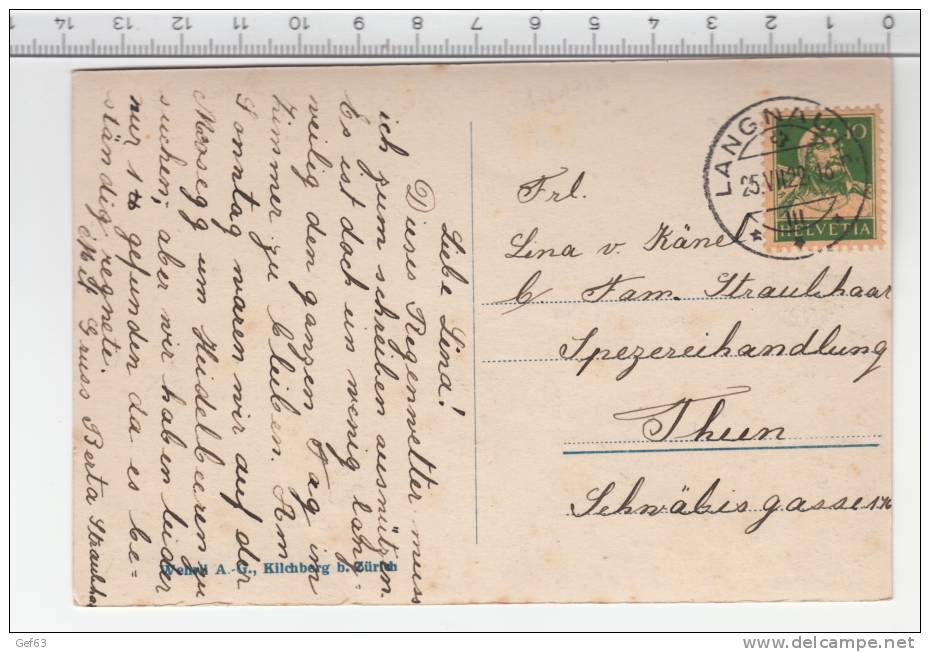 0 1 2 3 4 5 6 7 8 9 10 11 12 13 14
LANGNAU
25.VII.22
III
10
HELVETIA
Liebe Lina!
Dieses Regenwetter muss
ich zum schreiben ausnützen.
Es ist doch un wenig lang-
weilig den ganzen Tag im
Zimmer zu bleiben. Am
Sonntag waren wir auf der
Moosegg um Heidelbeeren zu
suchen; aber wir haben leider
nur 1 ℔ gefunden da es be-
ständig regnete.
Gruss Berta Straubhaar
Frl.
Lina v. Känel
b/ Fam. Straubhaar
Spezereihandlung
Thun
Schwäbisgasse
Wehrli A.-G., Kilchberg b. Zürich
Gef63
www.delcampe.net